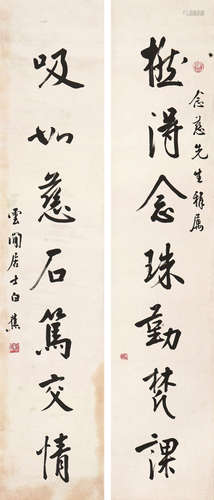 念慈先生雅属
拈得念珠勤梵課
吸如慈石篤交情
雲間居士白蕉